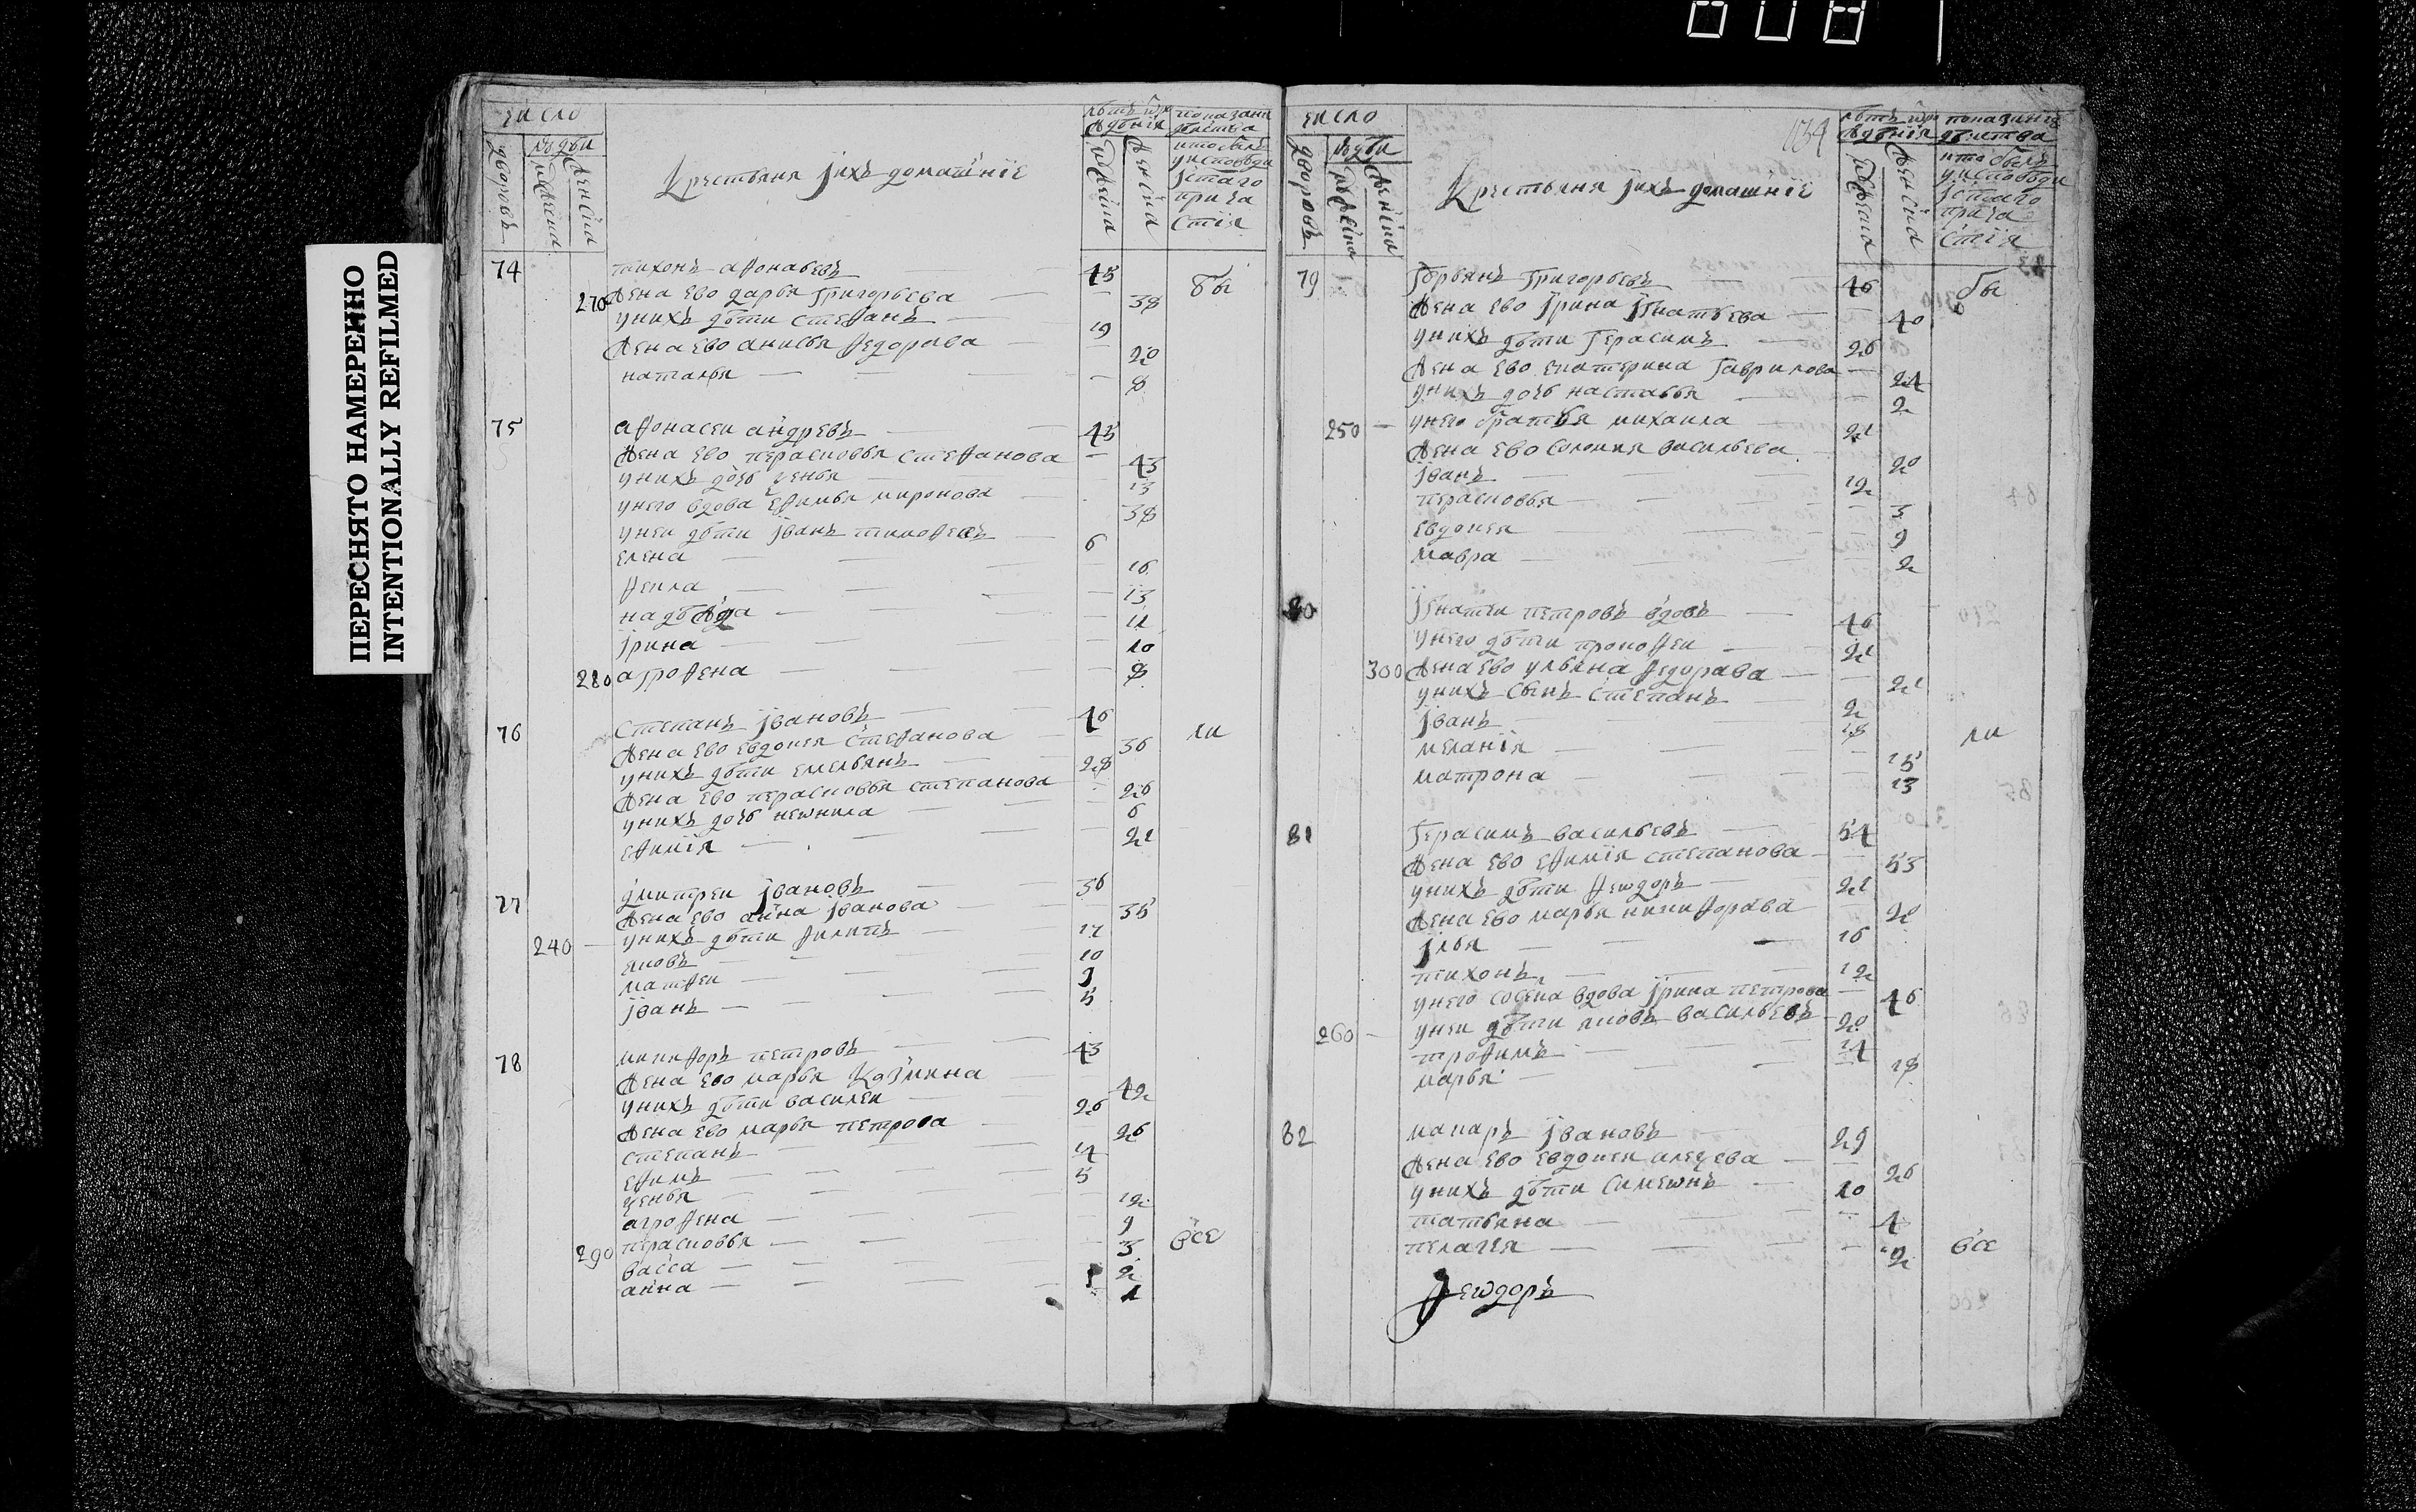 608
ПЕРЕСНЯТО НАМЕРЕННО
INTENTIONALLY REFILMED
число
дворовъ
людеи
мужеска
женска
Крестьяня јихъ домашнїе
лѣтъ
мужеска
женска
показани
что былъ
у исповѣди
јстаго
прича
стїя
74 тихонъ афонасьевъ — 45 бы
270 жена ево дарья григорьева — 38
у нихъ дѣти стефанъ — 19
жена ево анисья федорава — 20
наталья — 8
75 афонасеи андревъ — 45
жена ево парасковья стефанова — 43
у нихъ дочь ѯенья — 13
у него вдова ефимья миронова — 38
у неи дѣти јванъ тимофеевъ — 6
елена — 16
фекла — 13
надѣжда — 11
јрина — 10
280 агрофена — 8
76 степанъ јвановъ — 46 ли
жена ево евдокея стефанова — 36
у нихъ дѣти емельянъ — 28
жена ево парасковья степанова — 26
у нихъ дочь неѡнила — 6
ефимїя — 21
77 дмитреи јвановъ — 36
жена ево анна јванова — 35
240 — у нихъ дѣти филипъ — 17
яковъ — 10
матфеи — 9
јванъ — 5
78 никифоръ петровъ — 43
жена ево марья козмина — 42
у нихъ дѣти василеи — 26
жена ево марья петрова — 26
степанъ — 17
ефимъ — 5
ѯенья — 12
агрофена — 9
290 парасковья — 3 все
васса — 2
анна — 1
число
134
дворовъ
людеи
мужеска
женска
Крестьяня јихъ домашнїе
лѣтъ
мужеска
женска
показание
что былъ
у исповѣди
јстаго
прича
стїя
79 гурьянъ григорьевъ — 46 бы
жена ево јрина јгнатьева — 40
у нихъ дѣти герасимъ — 26
жена ево екатерина гаврилова — 24
у нихъ дочь настасья — 2
250 — у него братья михаила — 21
жена ево соломия васильева — 20
јванъ — 12
парасковья — 3
евдокея — 9
мавра — 2
80 јгнатеи петровъ вдовъ — 46
у него дѣти прокофеи — 21
300 жена ево ульяна федорава — 21
у нихъ сынъ степанъ — 2
јванъ — 18
меланїя — 15 ли
матрона — 13
81 герасимъ васильевъ — 54
жена ево ефимїя степанова — 53
у нихъ дѣти феѡдоръ — 21
жена ево марья никифорава — 20
јлья — 16
тихонъ — 12
у него вдова јрина петрова — 46
260 — у неи дѣти яковъ васильевъ — 20
трофимъ — 14
марья — 18
82 макаръ јвановъ — 29
жена ево евдокея — 26
у нихъ дѣти симеѡнъ — 10
татьяна — 4
пелагея — 2 все
Феѡдоръ